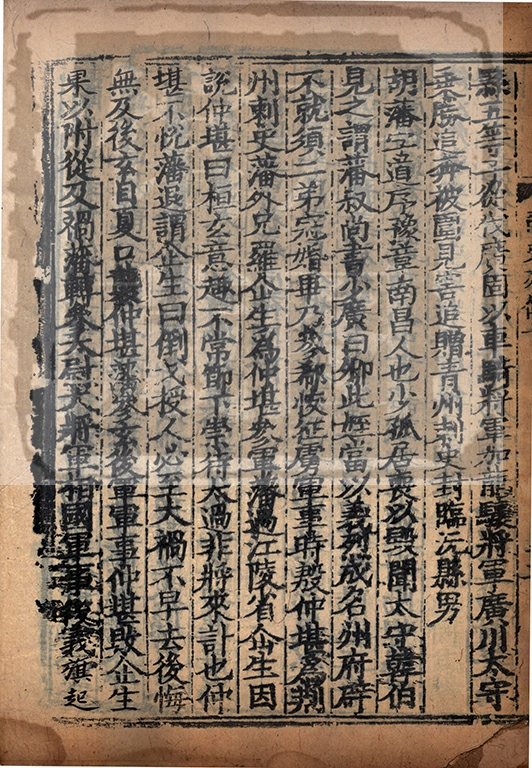 縣五等子從伐廣固以車騎將軍加龍驤將軍廣川太守
乘勝追奔被圍見害追贈青州刺史封臨沅縣男
胡藩字道序豫章南昌人也少孤居喪以毀聞太守韓伯
見之謂藩叔尚書少廣曰卿此姪當以義烈成名州府辟
不就須二弟冠婚畢乃參郗恢征虜軍事時殷仲堪爲荆
州刺史藩外兄羅企生爲仲堪參軍藩過江陵省企生因
說仲堪曰桓玄意趣不常節下崇待太過非將來計也仲
堪不悅藩退謂企生曰倒戈授人必至大禍不早去後悔
無及後玄自夏口襲仲堪藩參玄後軍軍事仲堪敗企生
果以附從及禍藩轉參太尉大將軍相國軍事後義旗起